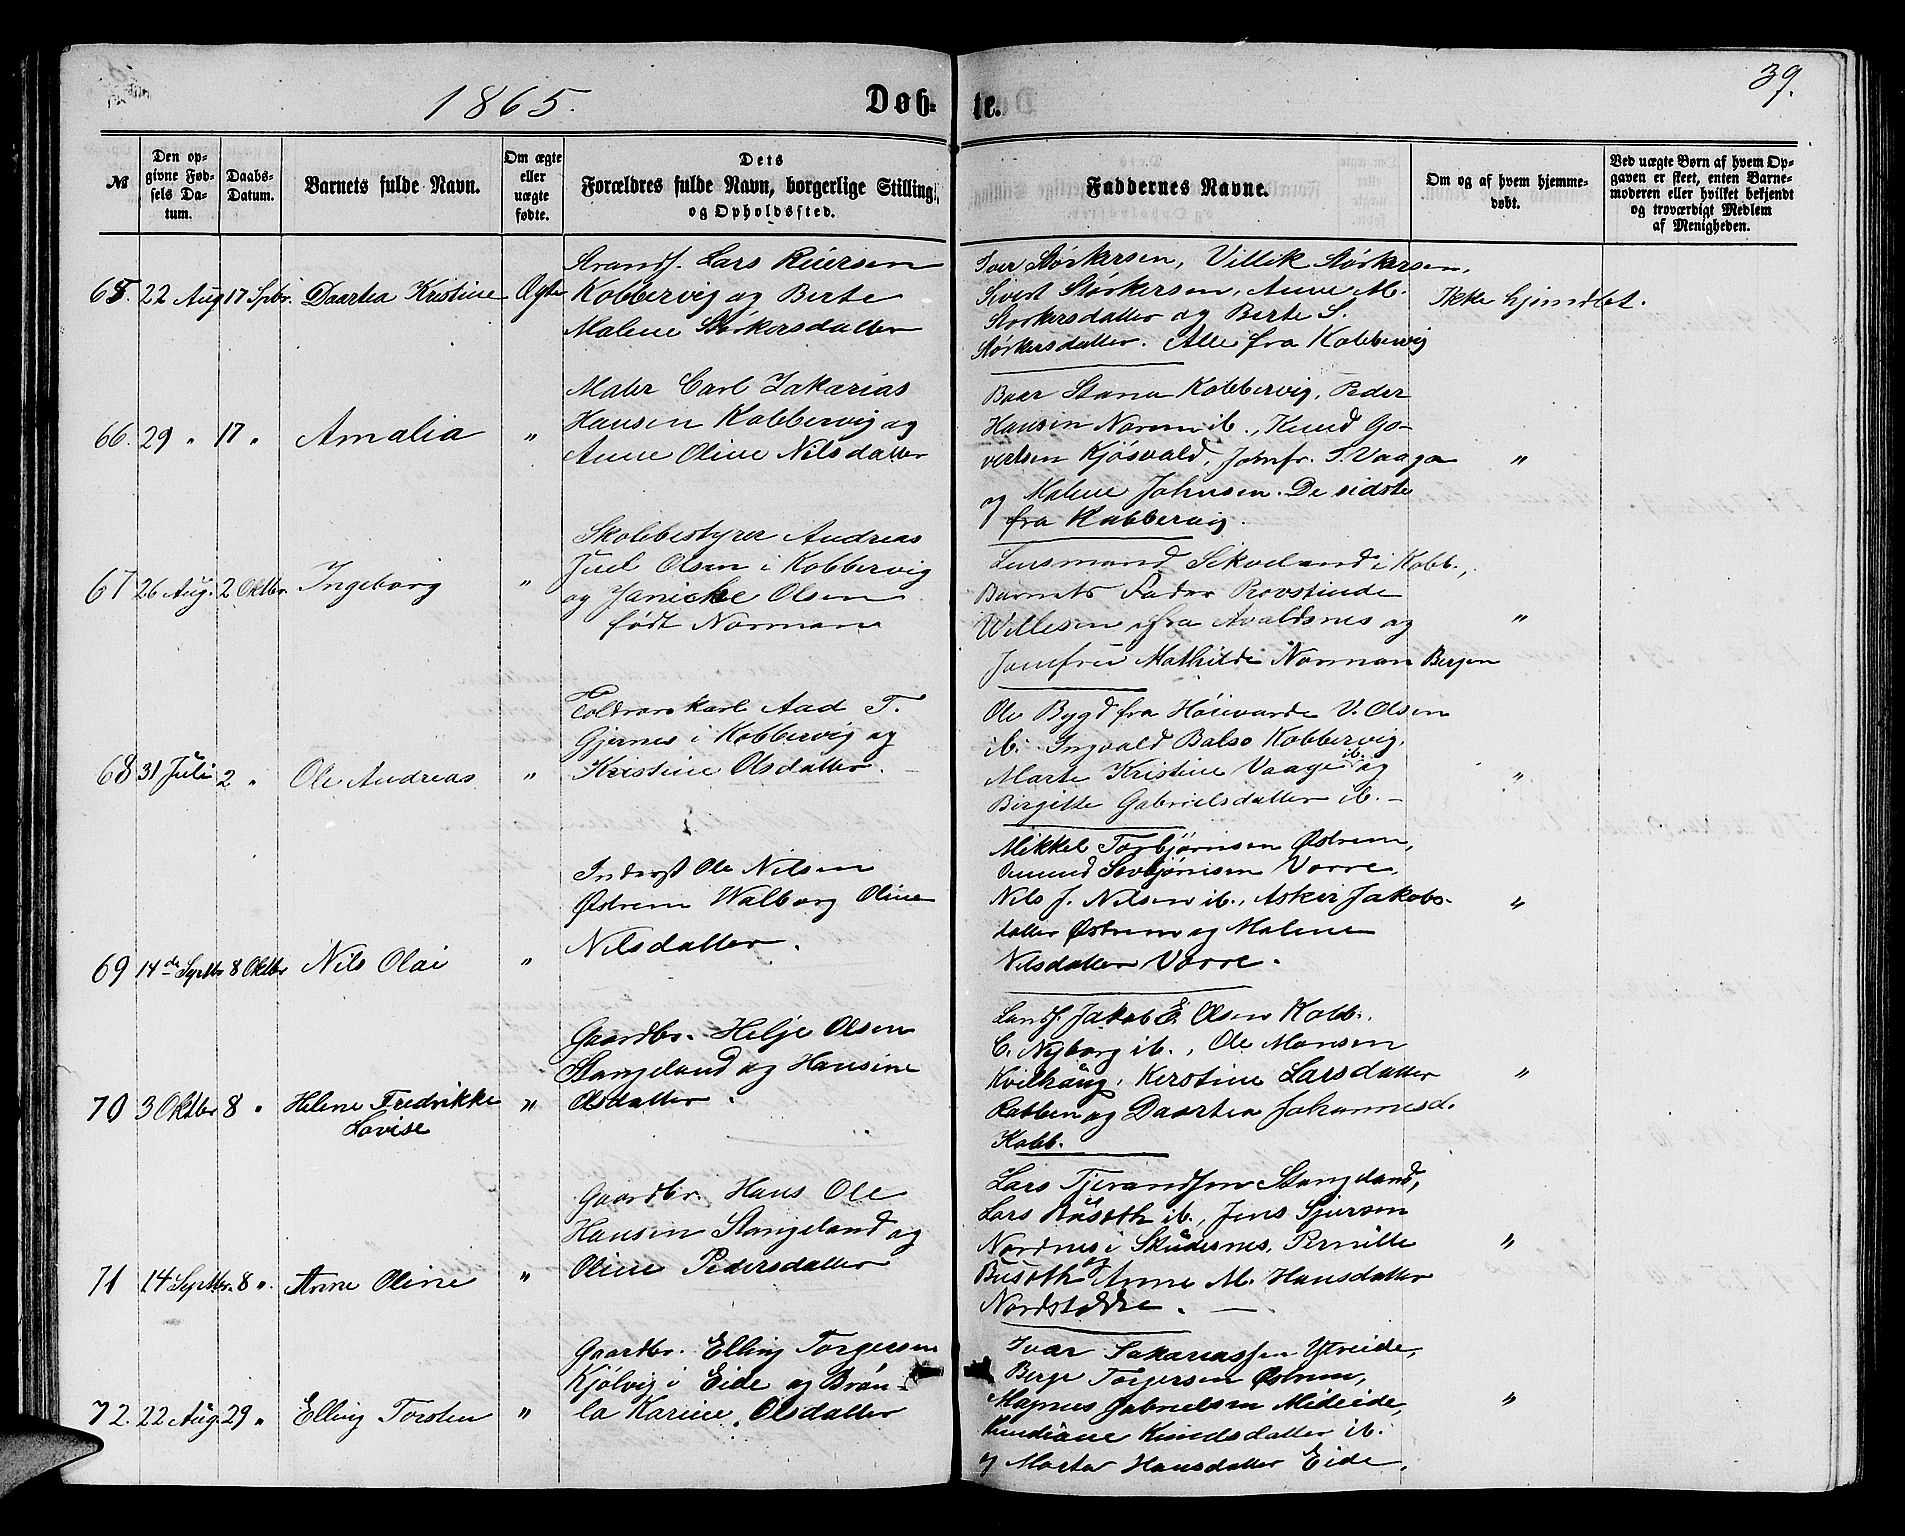 1865.
Døb-
te.
39.
№
Den op-
givne Fød-
sels Da-
tum.
Daabs-
Datum.
Barnets fulde Navn.
Om ægte
eller
uægte
fødte.
Dets
Forældres fulde Navn, borgerlige Stilling,
og Opholdssted.
Faddernes Navne.
Om og af hvem hjemme-
døbt.
Ved uægte Børn af hvem Op-
gaven er skeet, enten Barne-
moderen eller hvilket bekjendt
og troværdigt Medlem
af Menigheden.
65. 22 Aug 17 Spbr. Daartea Kristine Ægte
Strands. Lars Reiersen
Kobbervig og Berte
Malene Størkersdatter
Iver Størkersen, Villik Størkersen,
Sivert Størkersen, Anne M.
Størkersdatter og Berte S.
Størkersdatter. Alle fra Kobbervig
Ikke hjemdbt.
66. 29 " 17 " Amalia "
Maler Carl Zakarias
Hansen Kobbervig og
Anne Oline Nilsdatter
Baar Stana Kobbervig, Peder
Hansen Norem ib., Knud Go-
vertsen Kjøsvald, Jomfr. S. Vaaga
og Malene Johnsen. De sidste
fra Kobbervig.
"
67 26 Aug. 2 Oktbr. Ingeborg "
Skolebestyrer Andreas
Juel Olsen i Kobbervig
og Janicke Olsen
født Norman
Lensmand Sikveland i Kobb.,
Barnets Fader Provstinde
Willesen fra Avaldsnes og
Jomfru Mathilde Norman Bergen
"
68 31 Juli 2 " Ole Andreas "
Toldrorskarl Aad T.
Gjernes i Kobbervig og
Kristine Olsdatter.
Ole Bygd fra Høievarde V. Olsen
ib. Ingvald Balso Kobbervig,
Marte Kristine Vaage ib. og
Birgitte Gabrielsdatter ib. –
"
69 14de Septbr 8 Oktbr Nils Olai "
Inderst Ole Nilsen
Østrem Walborg Oline
Nilsdatter.
Mikkel Torbjørnsen Østrem,
Omund Sovbjørnsen Vorre,
Nils J. Nilsen ib., Asker Jakobs-
datter Østrem og Malene
Nilsdatter Vorre.
"
70 3 Oktbr 8 " Helene Fredrikke "
Lovise
Gaardbr. Helje Olsen
Stangeland og Hansine
Olsdatter.
Lands. Jakob E. Olsen Kobb.
C. Nyborg ib., Ole Monsen
Kvilhaug, Kerstine Larsdatter
Rabben og Daartea Johannesd.
Kobb.
"
71 14 Septbr. 8 ". Anne Oline "
Gaardbr. Hans Ole
Hansen Stangeland og
Oline Pedersdatter
Lars Tjerandsen Stangeland,
Lars Bueoth ib., Jens Sjursen
Nordnes i Skudesnes, Pernille
Busoth og Anne M. Hansdatter
Nordstokke. –
"
72. 22 Aug. 29 " Elling Torsten "
Gaardbr. Elling Torgersen
Kjølvig i Eide og Brøn-
la Karine Olsdatter
Ivar Sakariassen Ytreide,
Berge Torgersen Østrem,
Magnus Gabrielsen Mideide,
Knudiane Knudsdatter ib.
og Marta Hansdatter Eide.
"